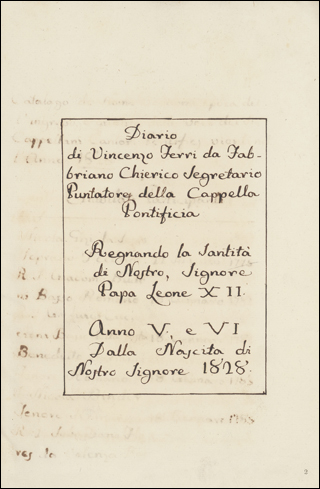 Diario
di Vincenzo Ferri da Fab-
briano Chierico Segretario
Puntatore, della Cappella
Pontificia
Regnando la Santità
di Nostro, Signore
Papa Leone XII.
Anno V, e VI
Dalla Nascita di
Nostro Signore 1828.
2